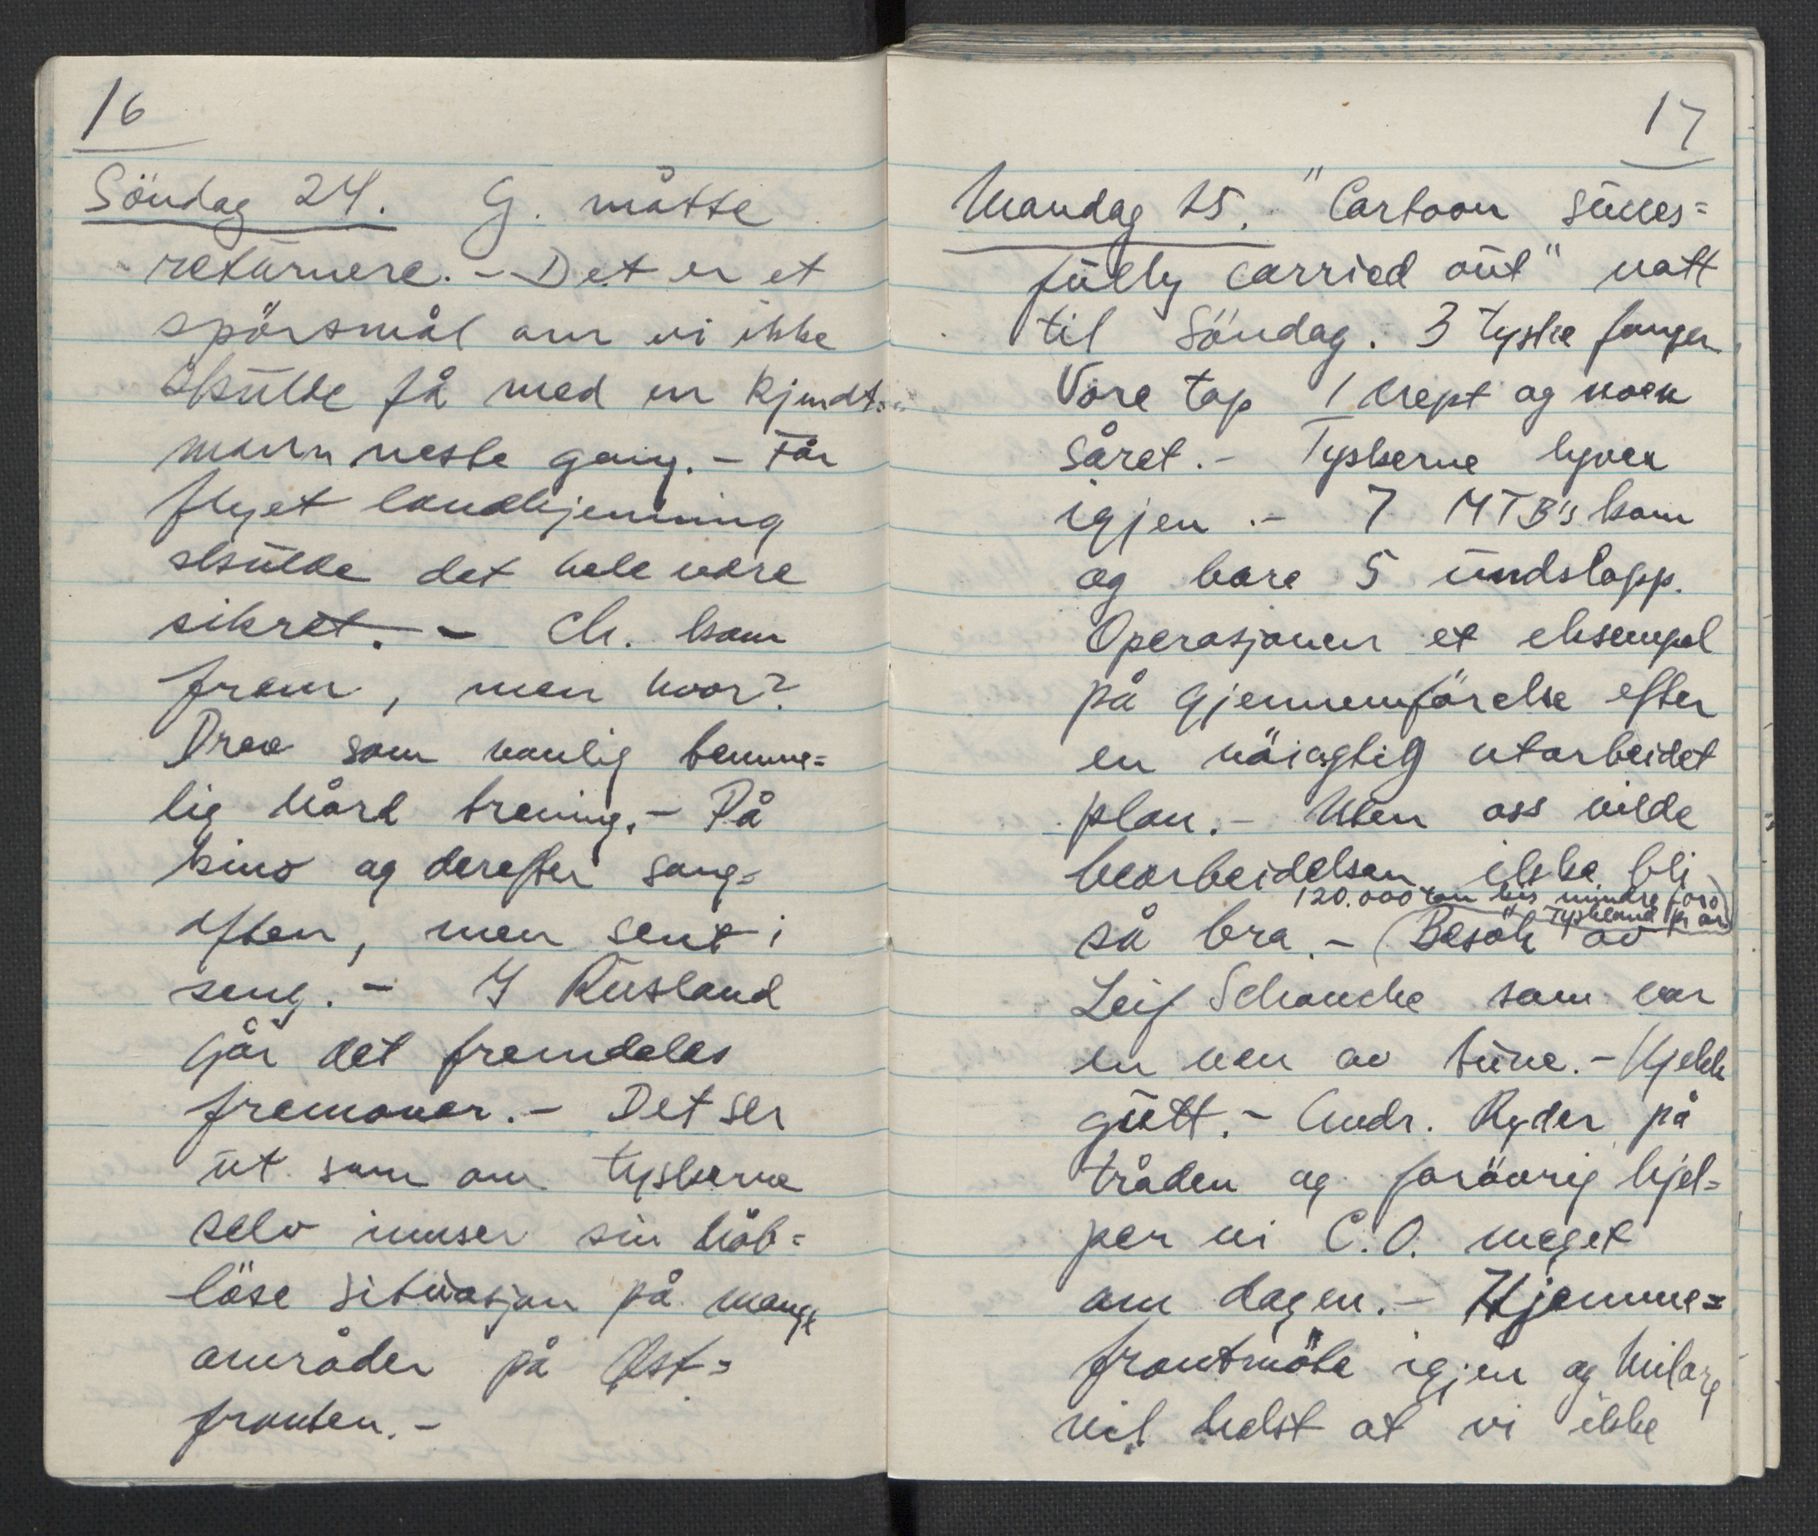 16
Söndag 24. G. måtte
returnere. - Det er et
spörsmål om vi ikke
skulde få med en kjendt-
mann neste gang. - Får
flyet landkjenning
skulde det hele være
sikret. - Ch. kom
frem, men hvor?
Drev som vanlig temme=
lig hård trening. - På
kino og derefter sang=
aften, men sent i
seng. - I Rusland
går det fremdeles
fremover. - Det ser
ut som om tyskerne
selv innser sin håb=
löse situasjon på mange
områder på Öst=
fronten. -
17
Mandag 25. "Cartoon succes=
fully carried out" natt
til Söndag. 3 tyske fanger
Våre tap 1 drept og noen
såret. - Tyskerne lyver
igjen. - 7 MTB's kom
og bare 5 undslapp.
Operasjonen et eksempel
på gjennemförelse efter
en nöiagtig utarbeidet
plan. - Uten oss vilde
bearbeidelsen ikke bli
120.000 ton kis mindre for
Tyskland pr år
så bra. - (Besök av
Leif Schancke som var
en ven av Tune. - Kjekk
gutt. - Andr. Ryder på
tråden og forövrig hjel=
per vi C.O. meget
om dagen. - Hjemme=
frontmöte igjen og Milorg
vil helst at vi ikke